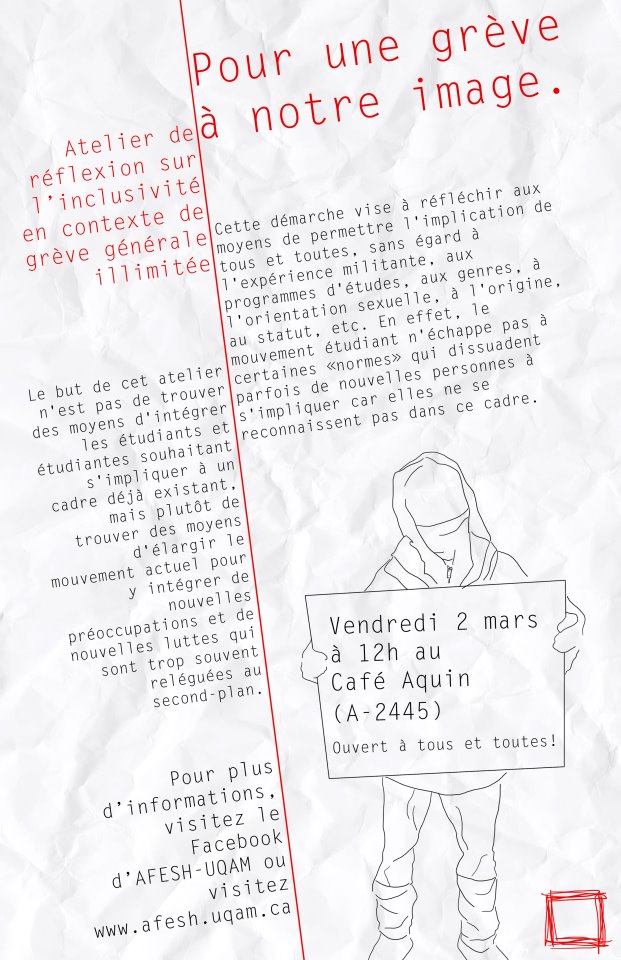 Pour une grève
à notre image.
Atelier de
réflexion sur
l'inclusivité
en contexte de
grève générale
illimitée
Cette démarche vise à réfléchir aux
moyens de permettre l'implication de
tous et toutes, sans égard à
l'expérience militante, aux
programmes d'études, aux genres, à
l'orientation sexuelle, à l'origine,
au statut, etc. En effet, le
mouvement étudiant n'échappe pas à
certaines «normes» qui dissuadent
parfois de nouvelles personnes à
s'impliquer car elles ne se
reconnaissent pas dans ce cadre.
Le but de cet atelier
n'est pas de trouver
des moyens d'intégrer
les étudiants et
étudiantes souhaitant
s'impliquer à un
cadre déjà existant,
mais plutôt de
trouver des moyens
d'élargir le
mouvement actuel pour
y intégrer de
nouvelles
préoccupations et de
nouvelles luttes qui
sont trop souvent
reléguées au
second-plan.
Vendredi 2 mars
à 12h au
Café Aquin
(A-2445)
Ouvert à tous et toutes!
Pour plus
d'informations,
visitez le
Facebook
d'AFESH-UQAM ou
visitez
www.afesh.uqam.ca